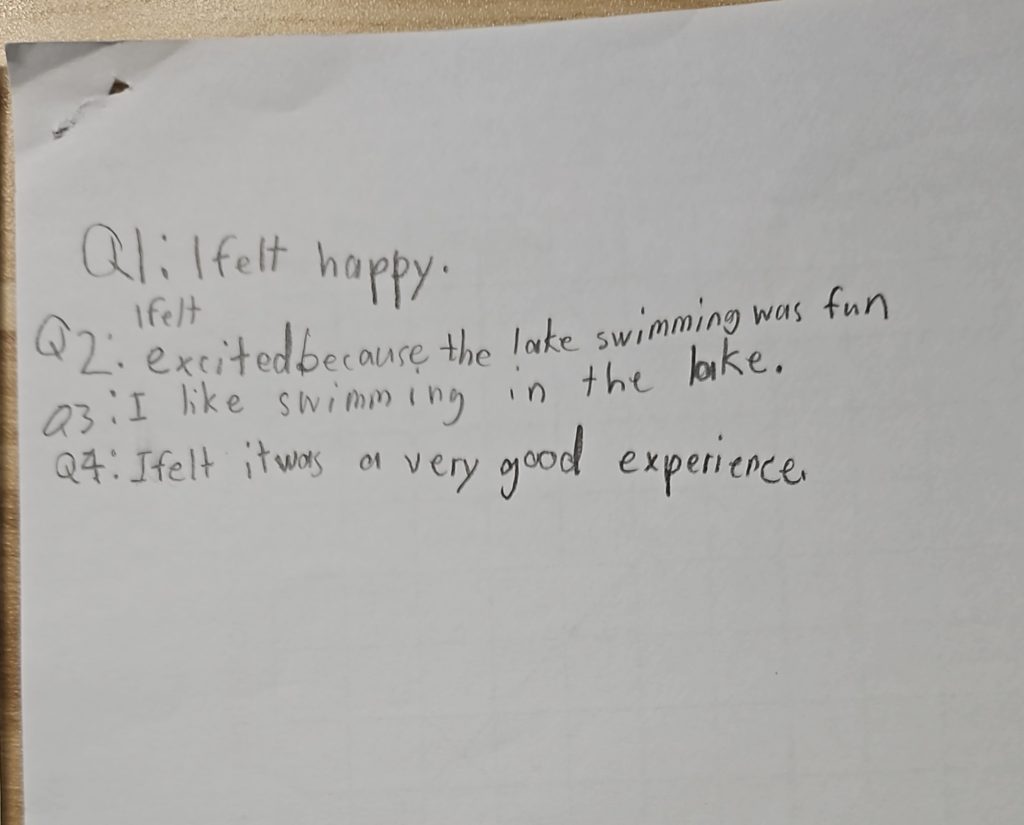 Q1: I felt happy.
I felt
Q2: excited because the lake swimming was fun
Q3: I like swimming in the lake.
Q4: I felt it was a very good experience.